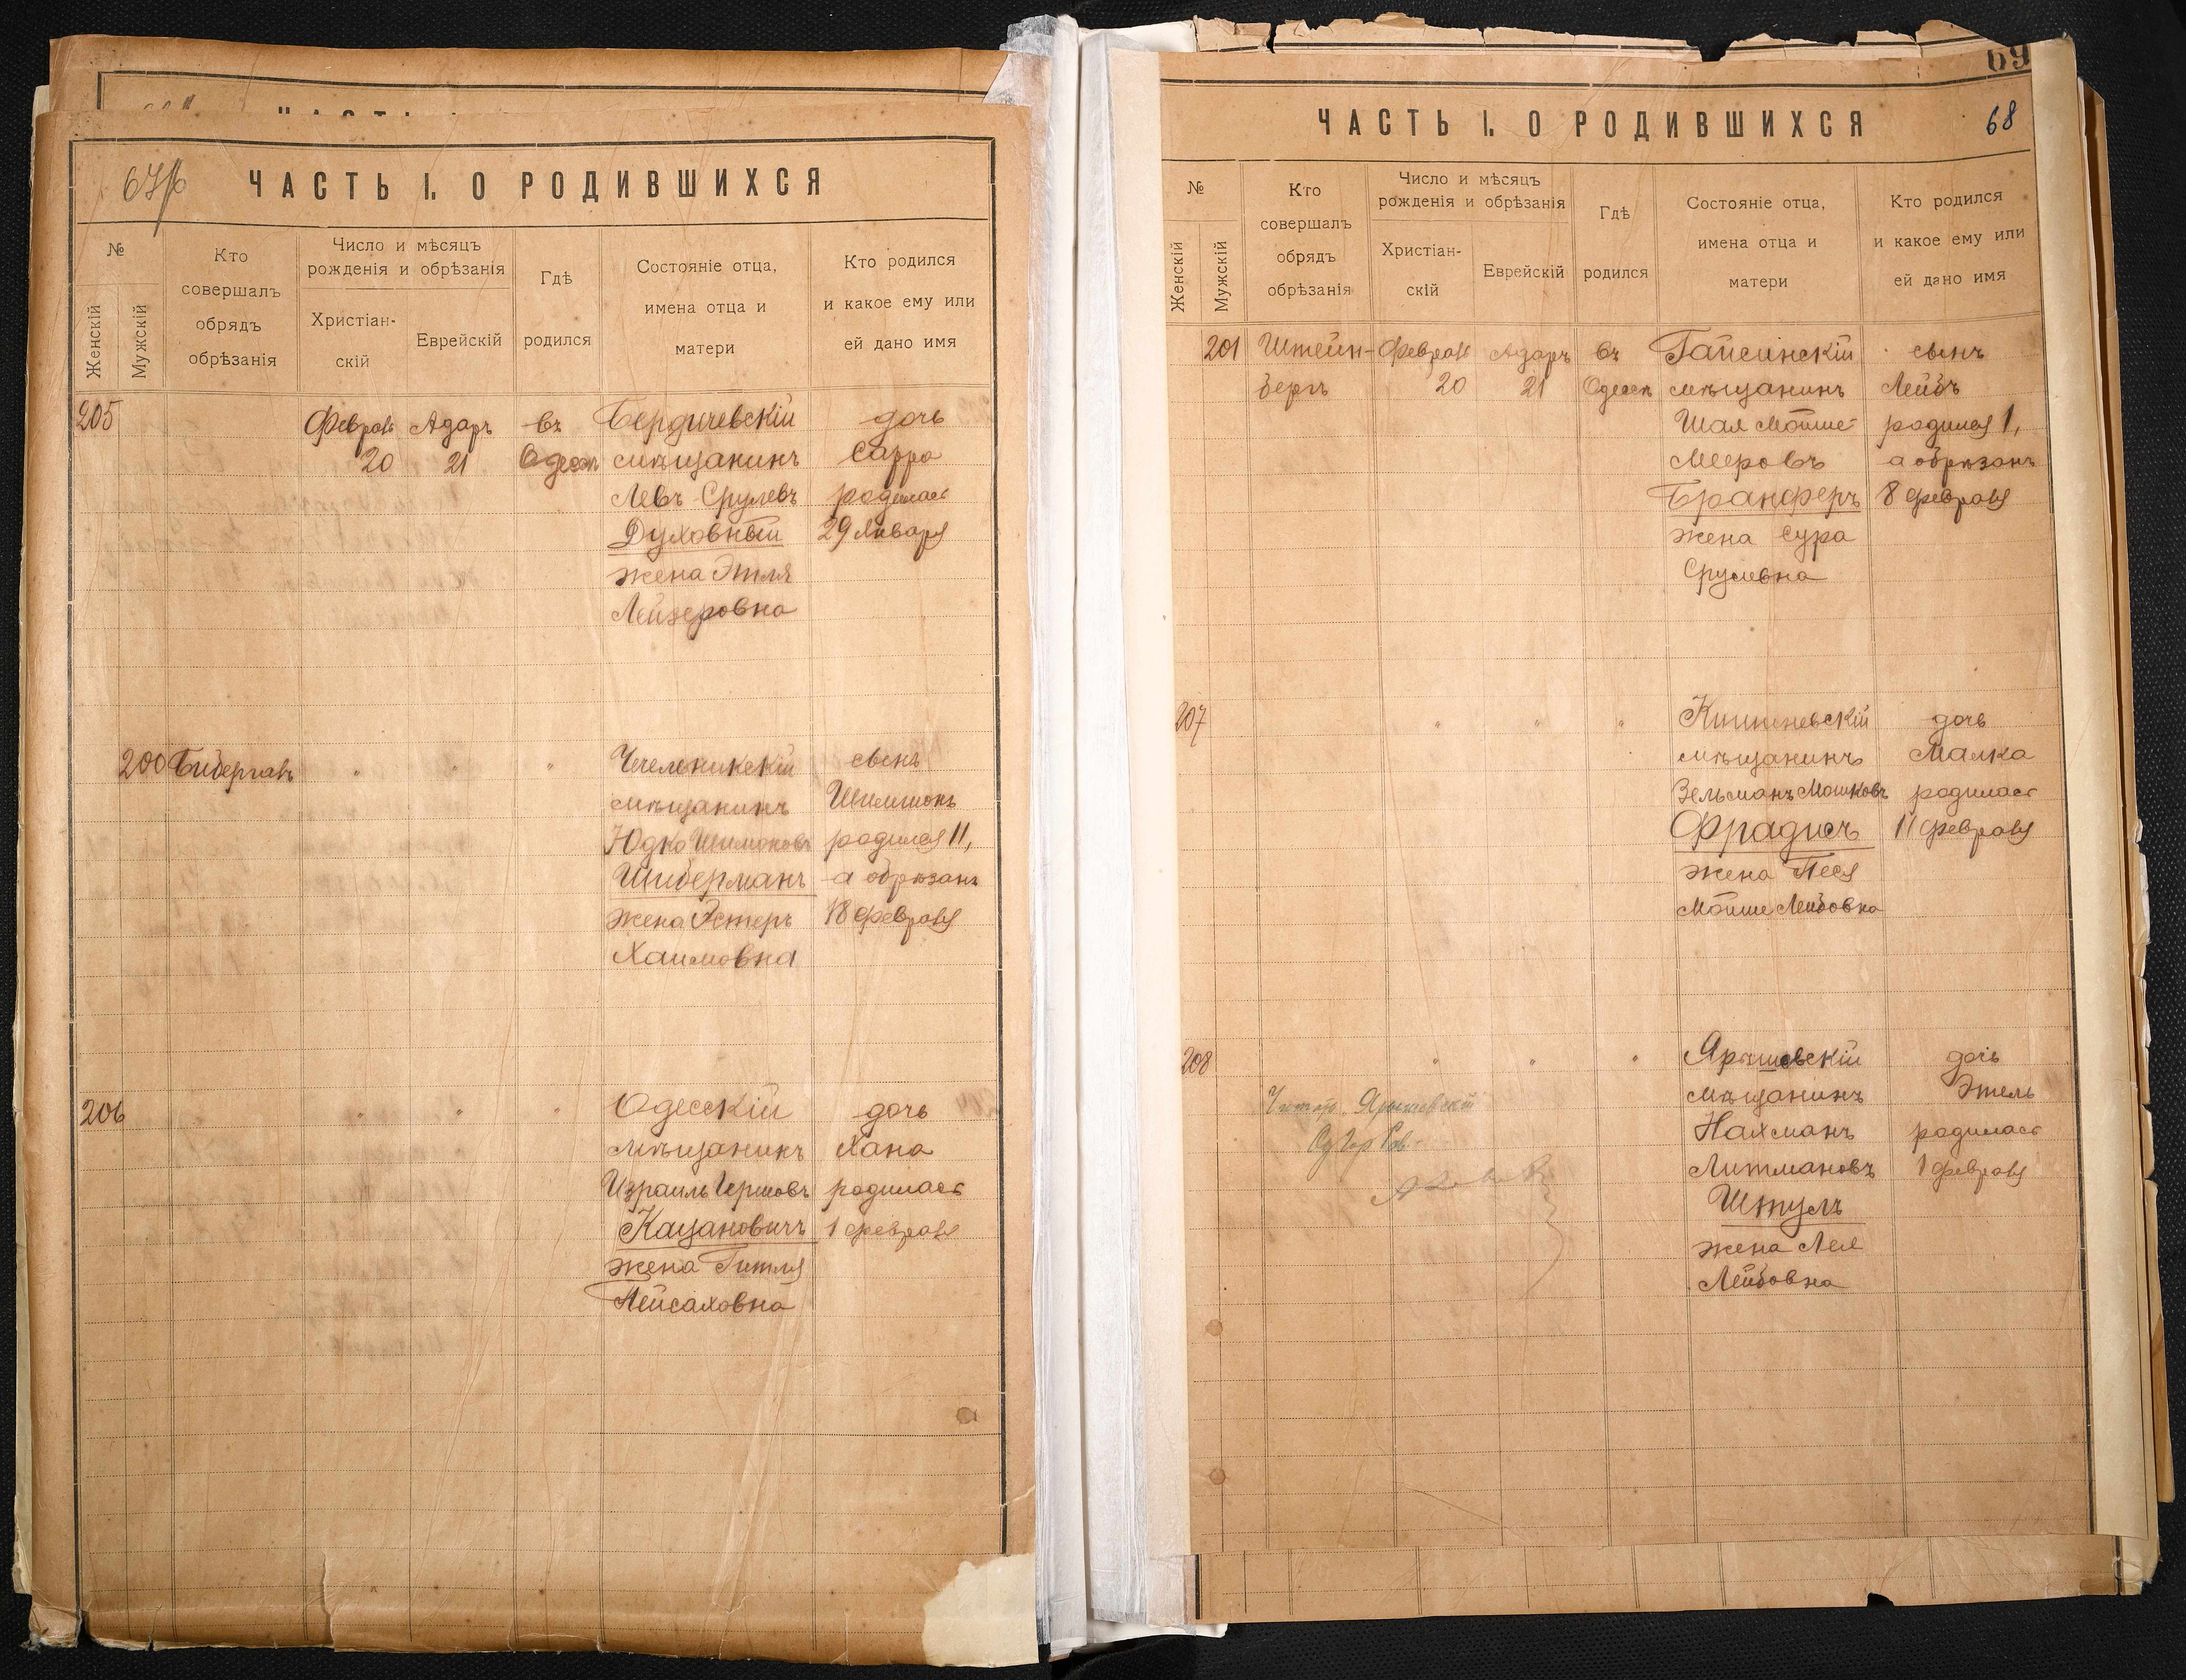 67/б
ЧАСТЬ I. О РОДИВШИХСЯ
№
Женскій
Мужскій
Кто
совершалъ
обрядъ
обрѣзанія
Число и мѣсяцъ
рожденія и обрѣзанія
Христіан-
скій
Еврейскій
Гдѣ
родился
Состояніе отца,
имена отца и
матери
Кто родился
и какое ему или
ей дано имя
205
Февраля
20
Адаръ
21
въ
Одессѣ
Бердичевскій
мѣщанинъ
Левъ Срулевъ
Духовный
жена Этля
Лейзеровна
дочь
Сарра
родилась
29 Января
200
"
"
"
мѣщанинъ
Юдко Шимоновъ
Шиберманъ
жена Эстеръ
Хаимовна
сынъ
Шимшонъ
родился 11,
а обрѣзанъ
18 февраля
206
"
"
"
Одесскій
мѣщанинъ
Израиль Гершовъ
Кацановичъ
жена Гитля
Пейсаховна
дочь
Хана
родилась
1 февраля
69
68
ЧАСТЬ I. О РОДИВШИХСЯ
№
Женскій
Мужскій
Кто
совершалъ
обрядъ
обрѣзанія
Число и мѣсяцъ
рожденія и обрѣзанія
Христіан-
скій
Еврейскій
Гдѣ
родился
Состояніе отца,
имена отца и
матери
Кто родился
и какое ему или
ей дано имя
201
Штейн-
бергъ
Февраля
20
Адаръ
21
въ
Одессѣ
Гайсинскій
мѣщанинъ
Шая Мойше-
Мееровъ
Бранферъ
жена Сура
Срулевна
сынъ
Лейбъ
родился 1,
а обрѣзанъ
8 февраля
207
"
"
"
Кишиневскій
мѣщанинъ
Зельманъ Мошковъ
Фрадисъ
жена Песя
Мойше Лейбовна
дочь
Малка
родилась
11 февраля
208
"
"
"
Ярышевскій
мѣщанинъ
Нахманъ
Литмановъ
Штулъ
жена Лея
Лейбовна
дочь
Этель
родилась
1 февраля
Ярышевскій